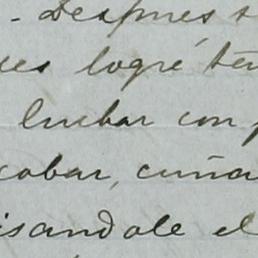 - Despues t
ues logré te
luchar con
cobar, cuña
isandole el